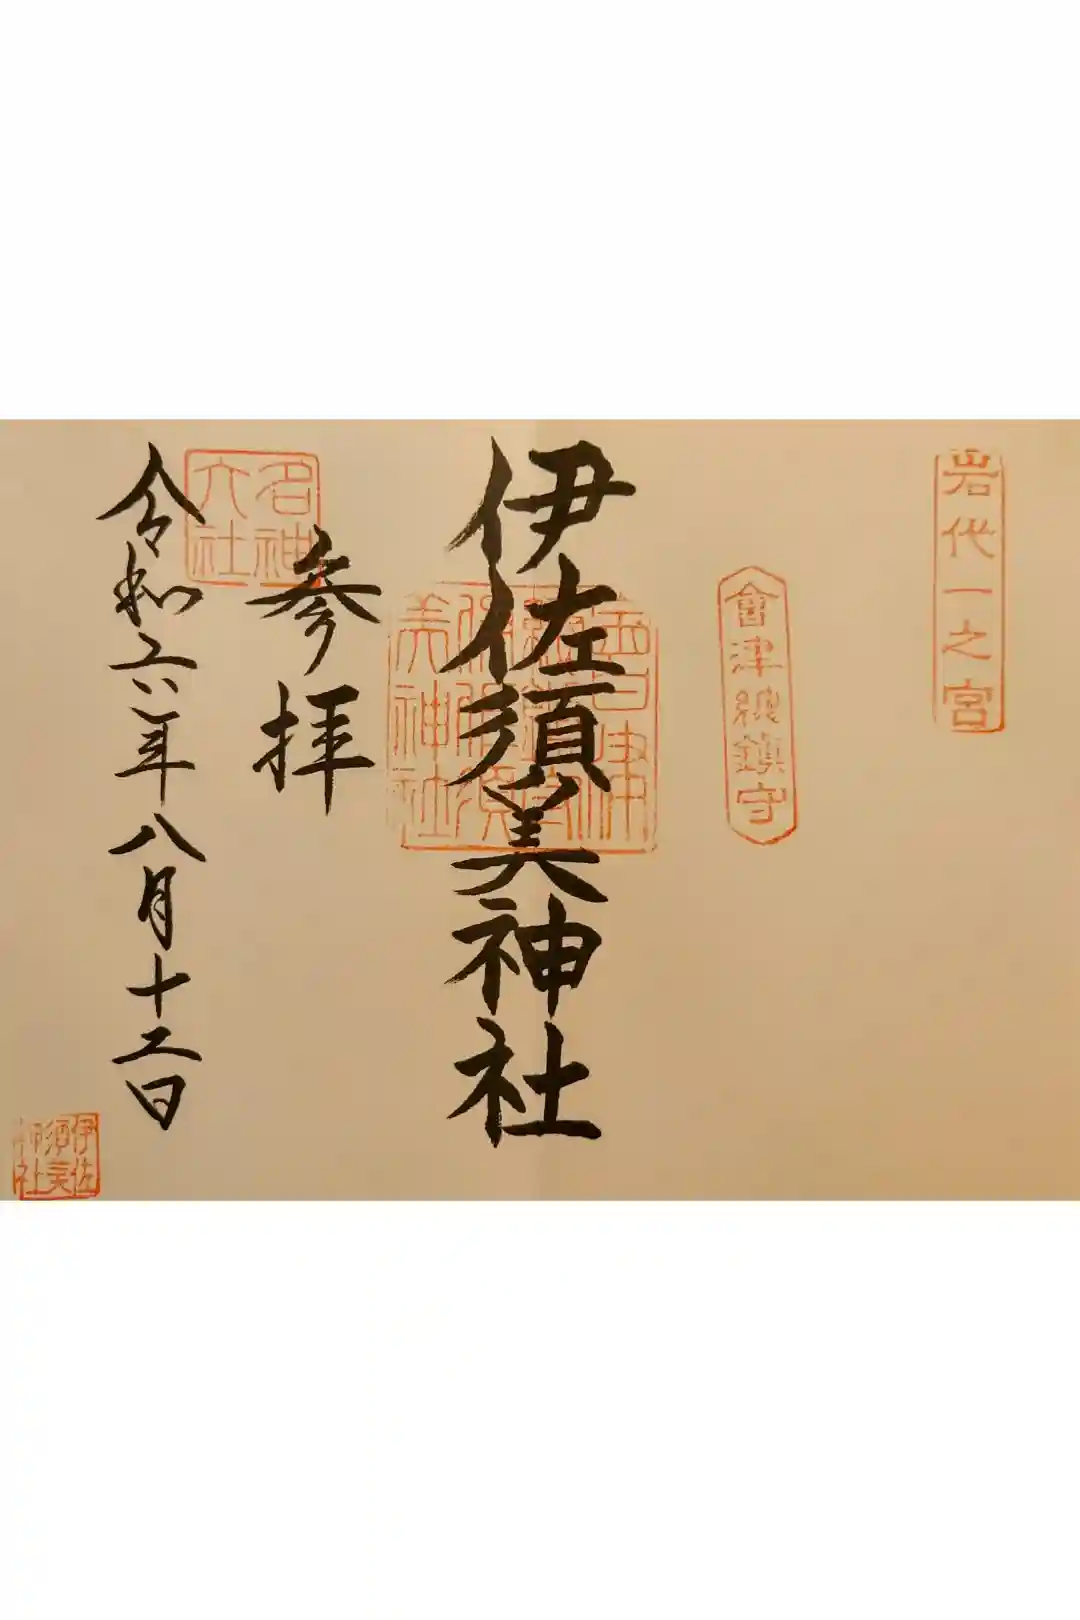 岩代一之宮
會津総鎮守
伊佐須美神社
會津総鎮守伊佐須美神社
参拝
名神大社
令和六年八月十二日
伊佐須美神社